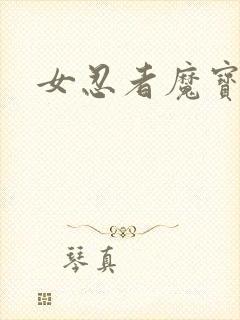 女忍者魔寶
琴真